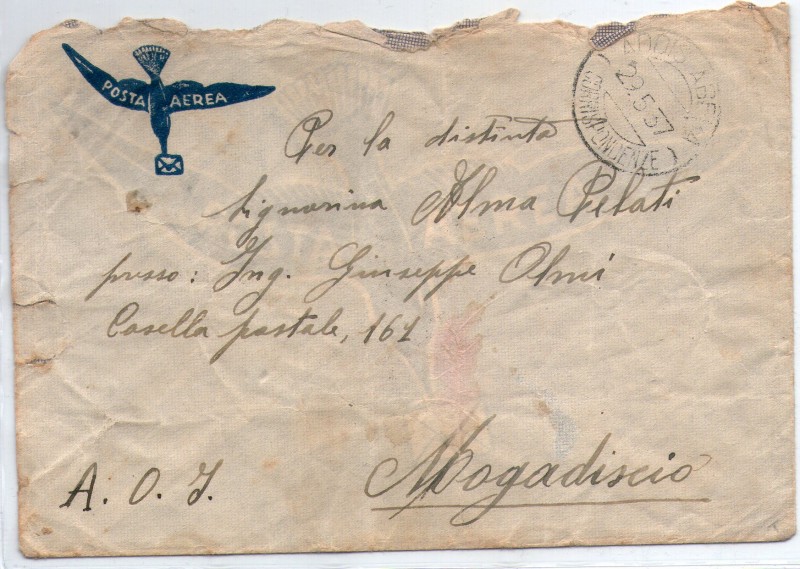 POSTA AEREA
29.5.37
CORRISPONDENZE
Per la distinta
Signorina Alma Pelati
presso: Ing. Giuseppe Olmi
Casella postale, 161
A. O. I. Mogadiscio